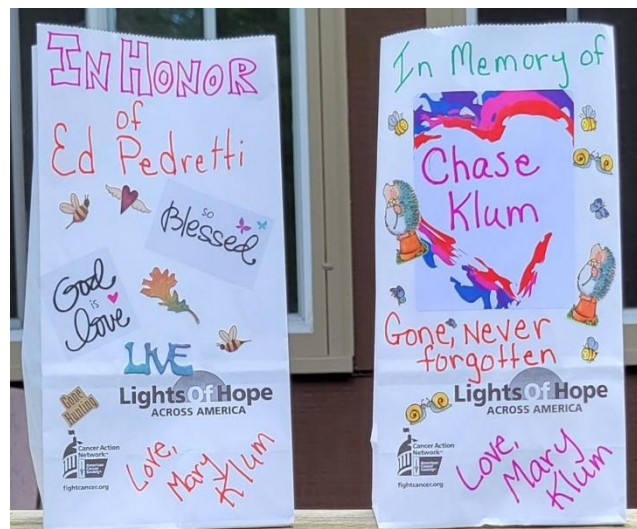 IN HONOR
of
Ed Pedretti
so
Blessed
God
is
love
LIVE
Gone
Hunting
LightsOfHope
ACROSS AMERICA
Cancer Action
Network™
American
Cancer
Society
fightcancer.org
Love,
Mary
Klum
In Memory of
Chase
Klum
Gone, Never
forgotten
LightsOfHope
ACROSS AMERICA
Cancer Action
Network™
American
Cancer
Society
fightcancer.org
Love,
Mary
Klum